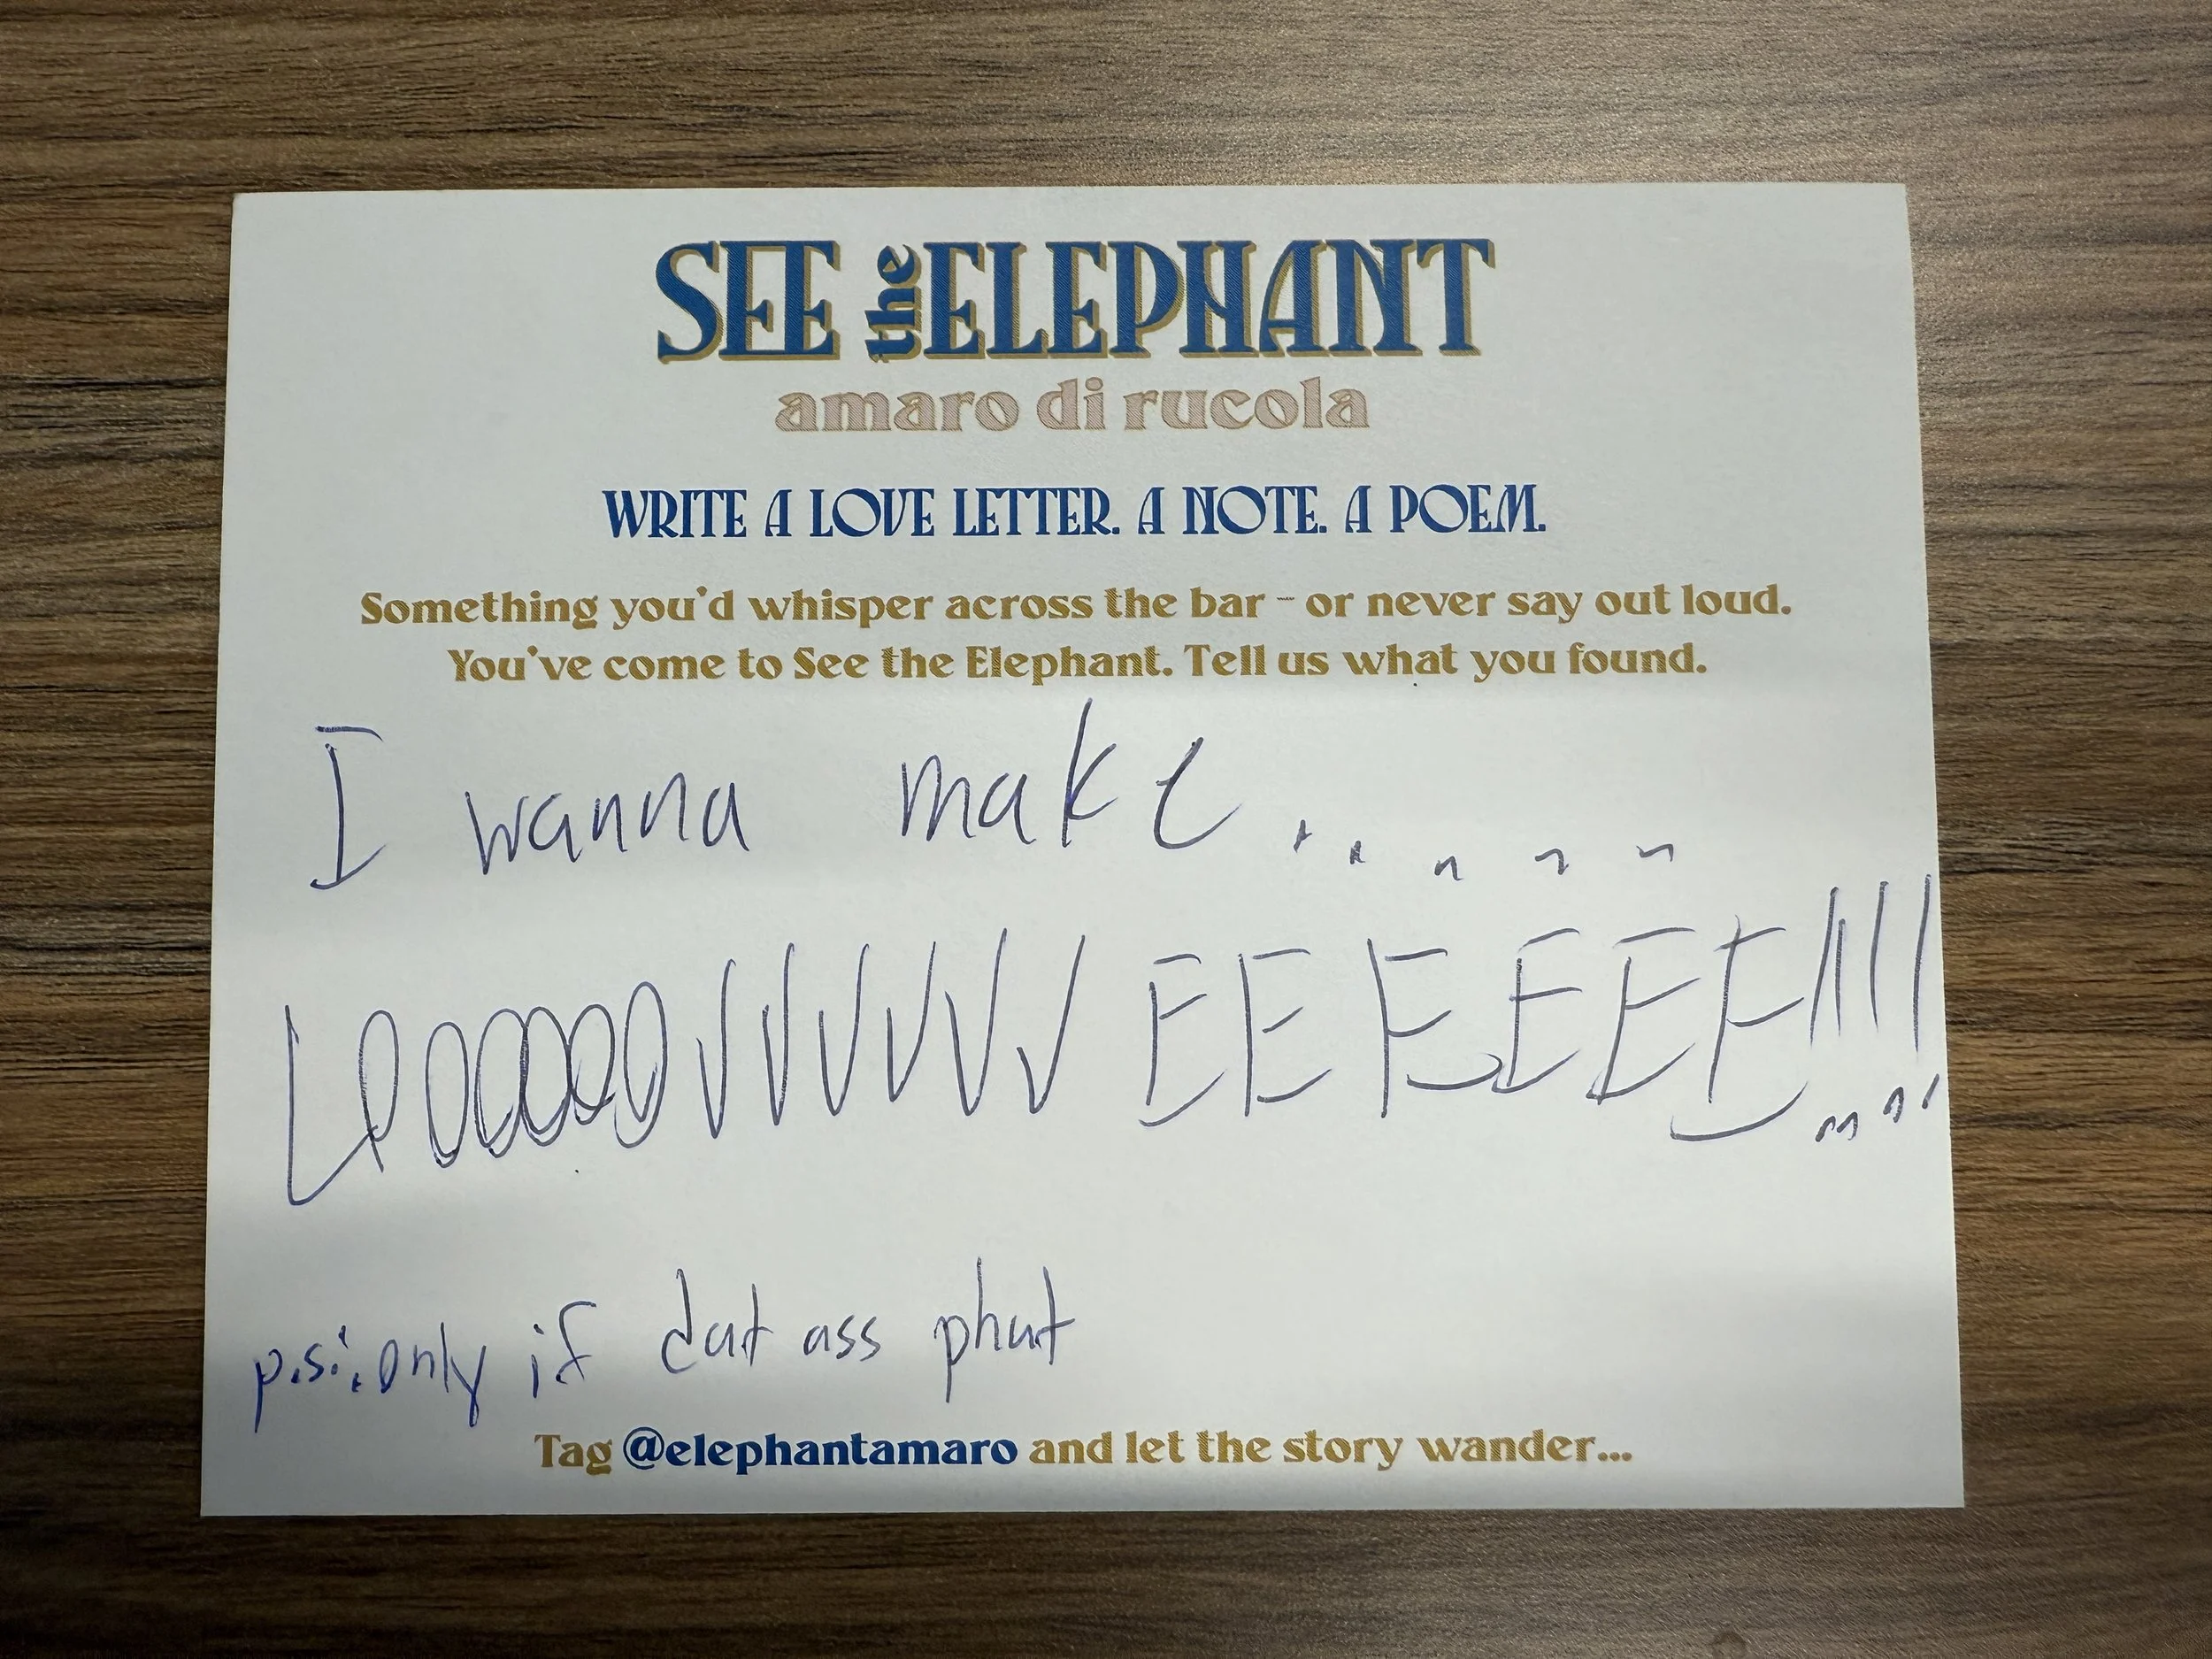 SEE the ELEPHANT
amaro di rucola
WRITE A LOVE LETTER. A NOTE. A POEM.
Something you'd whisper across the bar - or never say out loud.
You've come to See the Elephant. Tell us what you found.
I wanna make.....
LOOOOOOOVVVVVVEEEEEE!!!
p.s.: only if dat ass phat
Tag @elephantamaro and let the story wander...